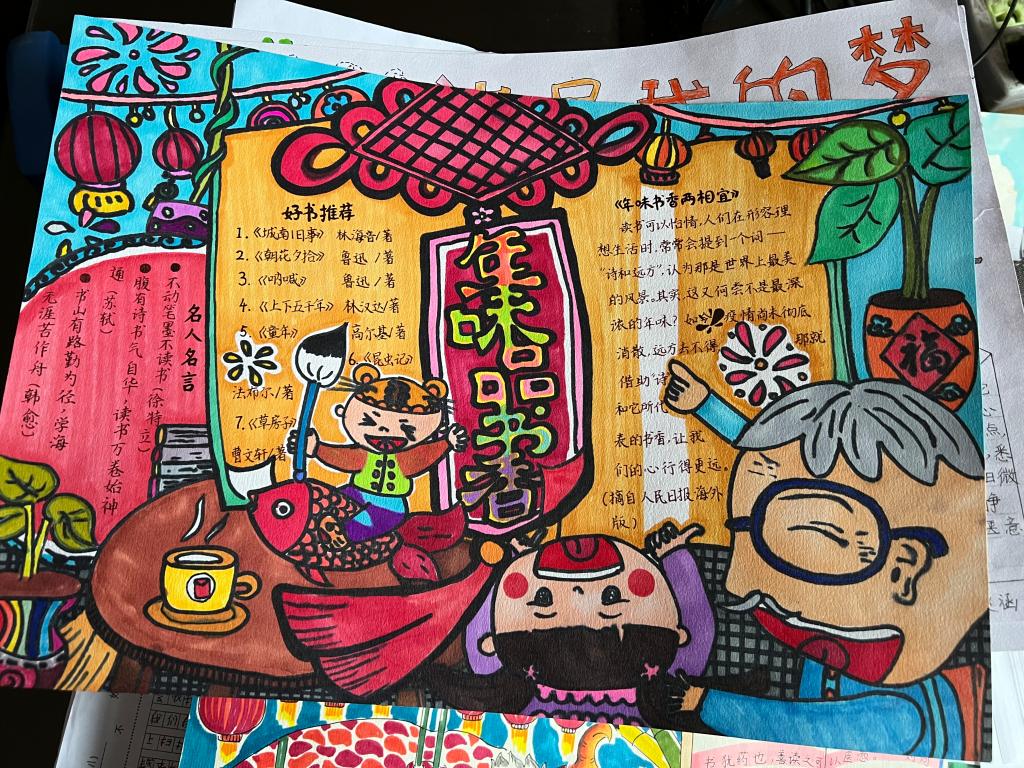 的梦
年味品书香
好书推荐
1.《城南旧事》 林海音/著
2.《朝花夕拾》 鲁迅/著
3.《呐喊》 鲁迅/著
4.《上下五千年》 林汉达/著
5.《童年》 高尔基/著
6.《昆虫记》
法布尔/著
7.《草房子
曹文轩/著
《年味书香两相宜》
读书可以怡情,人们在形容理
想生活时,常常会提到一个词——
“诗和远方”,认为那是世界上最美
的风景。其实,这又何尝不是最深
浓的年味?如 疫情尚未彻底
消散,远方去不得 那就
借助“诗
和它所代
表的书香,让我
们的心行得更远。
(摘自人民日报海外
版)
名人名言
●不动笔墨不读书(徐特立)
●腹有诗书气自华,读书万卷始神
通(苏轼)
●书山有路勤为径,学海
无涯苦作舟(韩愈)
福
书犹药也,善读之可以医愚